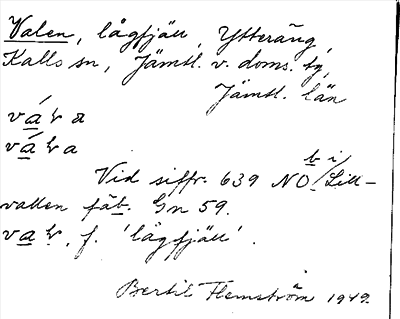 Valen, lågfjäll, Ytteräng,
Kalls sn, Jämtl. v. doms. tg,
Jämtl. län
Vid siffr. 639 NO b i/Lill-
vallen fäb. Gn 59.
f. 'lågfjäll'.
Bertil Flemström 1949.